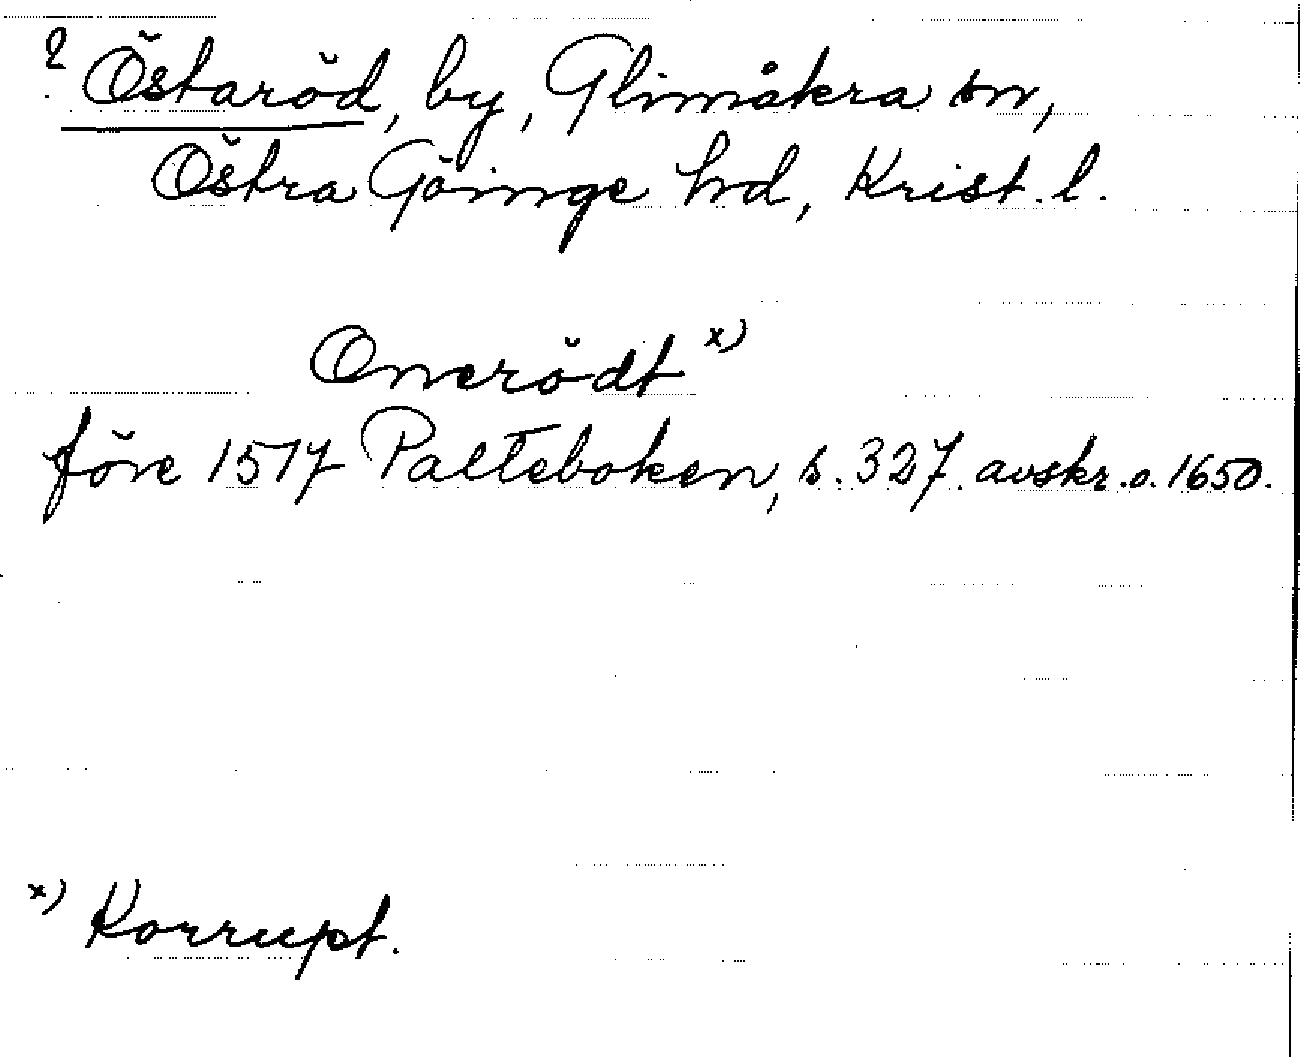 ? Östaröd, by, Glimåkra sn,
Östra Göinge hd, Krist. l.
Onerödt x)
före 1517 Palteboken, s. 327. avskr. o. 1650.
x) Korrupt.